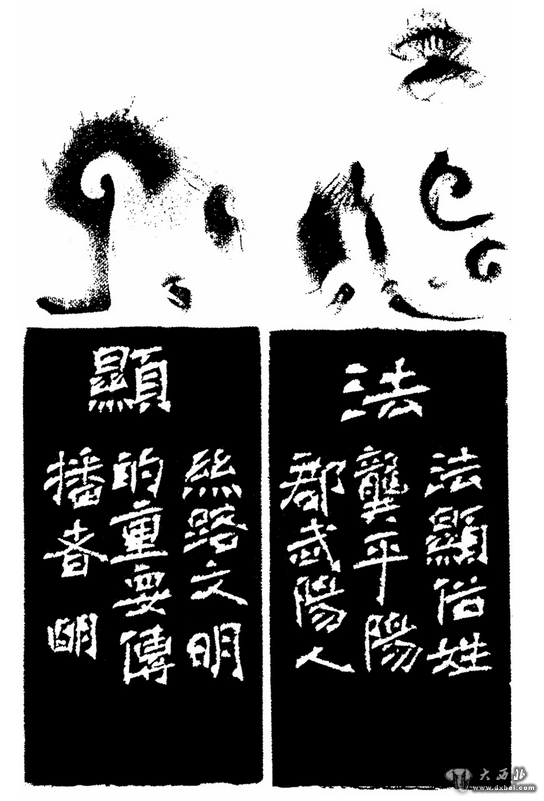 法
法顯俗姓
龔平陽
郡武陽人
顯
絲路文明
的重要傳
播者 明
大西北
www.dxbei.com